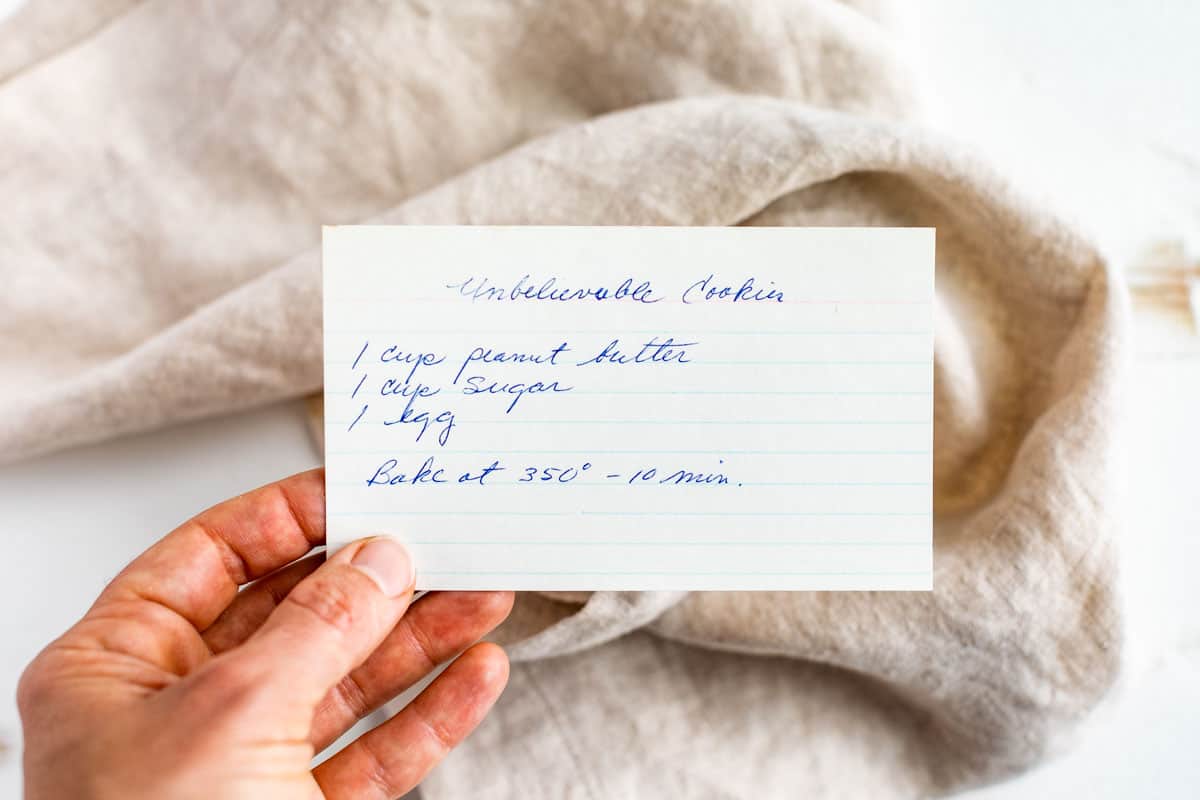 Unbelievable Cookies
1 cup peanut butter
1 cup sugar
1 egg
Bake at 350° - 10 min.